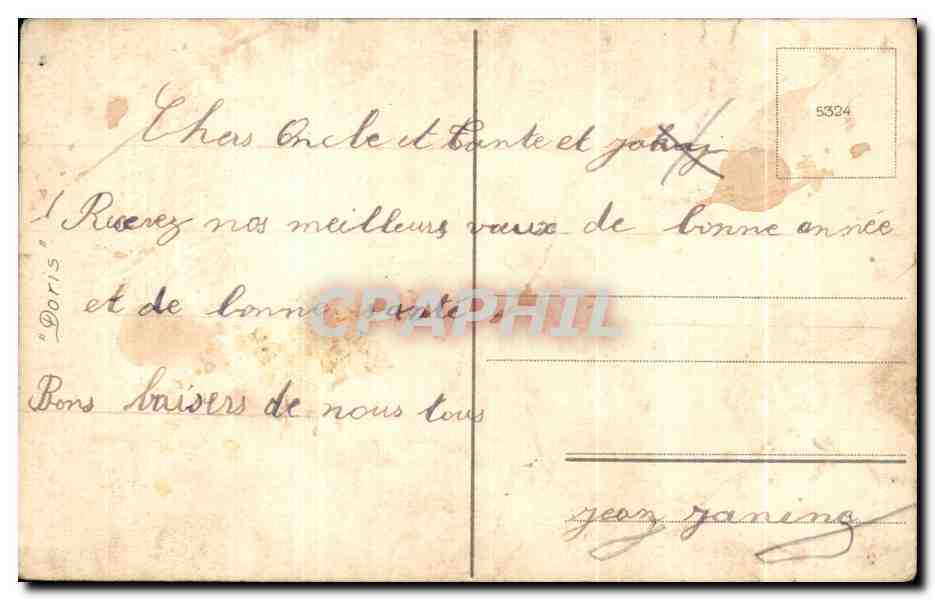 5324
Chers Oncle et Tante et
Recevez nos meilleurs vœux de bonne année
et de bonne santé
Bons baisers de nous tous
jean janine
"Doris"
CPAPHIL